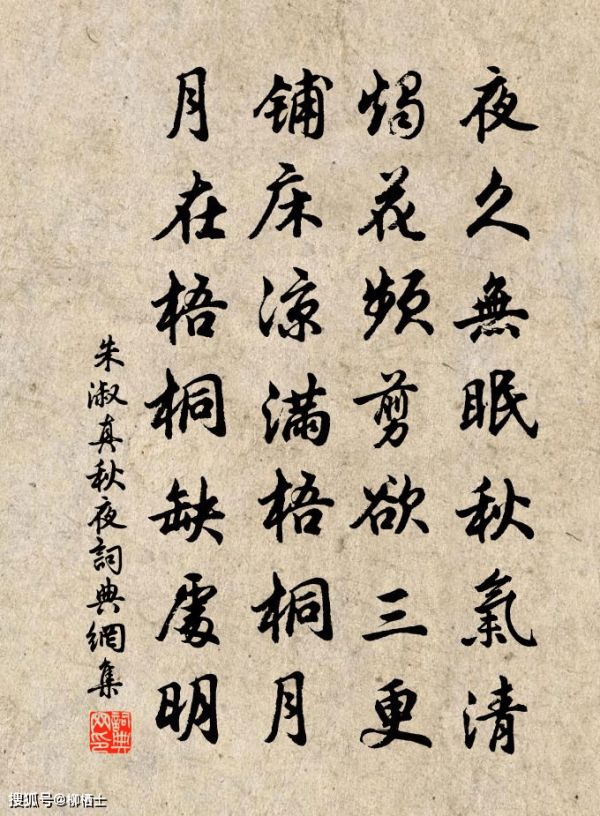 夜久無眠秋氣清
燭花頻剪欲三更
铺床涼滿梧桐月
月在梧桐缺處明
朱淑真秋夜詞典網集
詞典网印
搜狐号@柳栖士